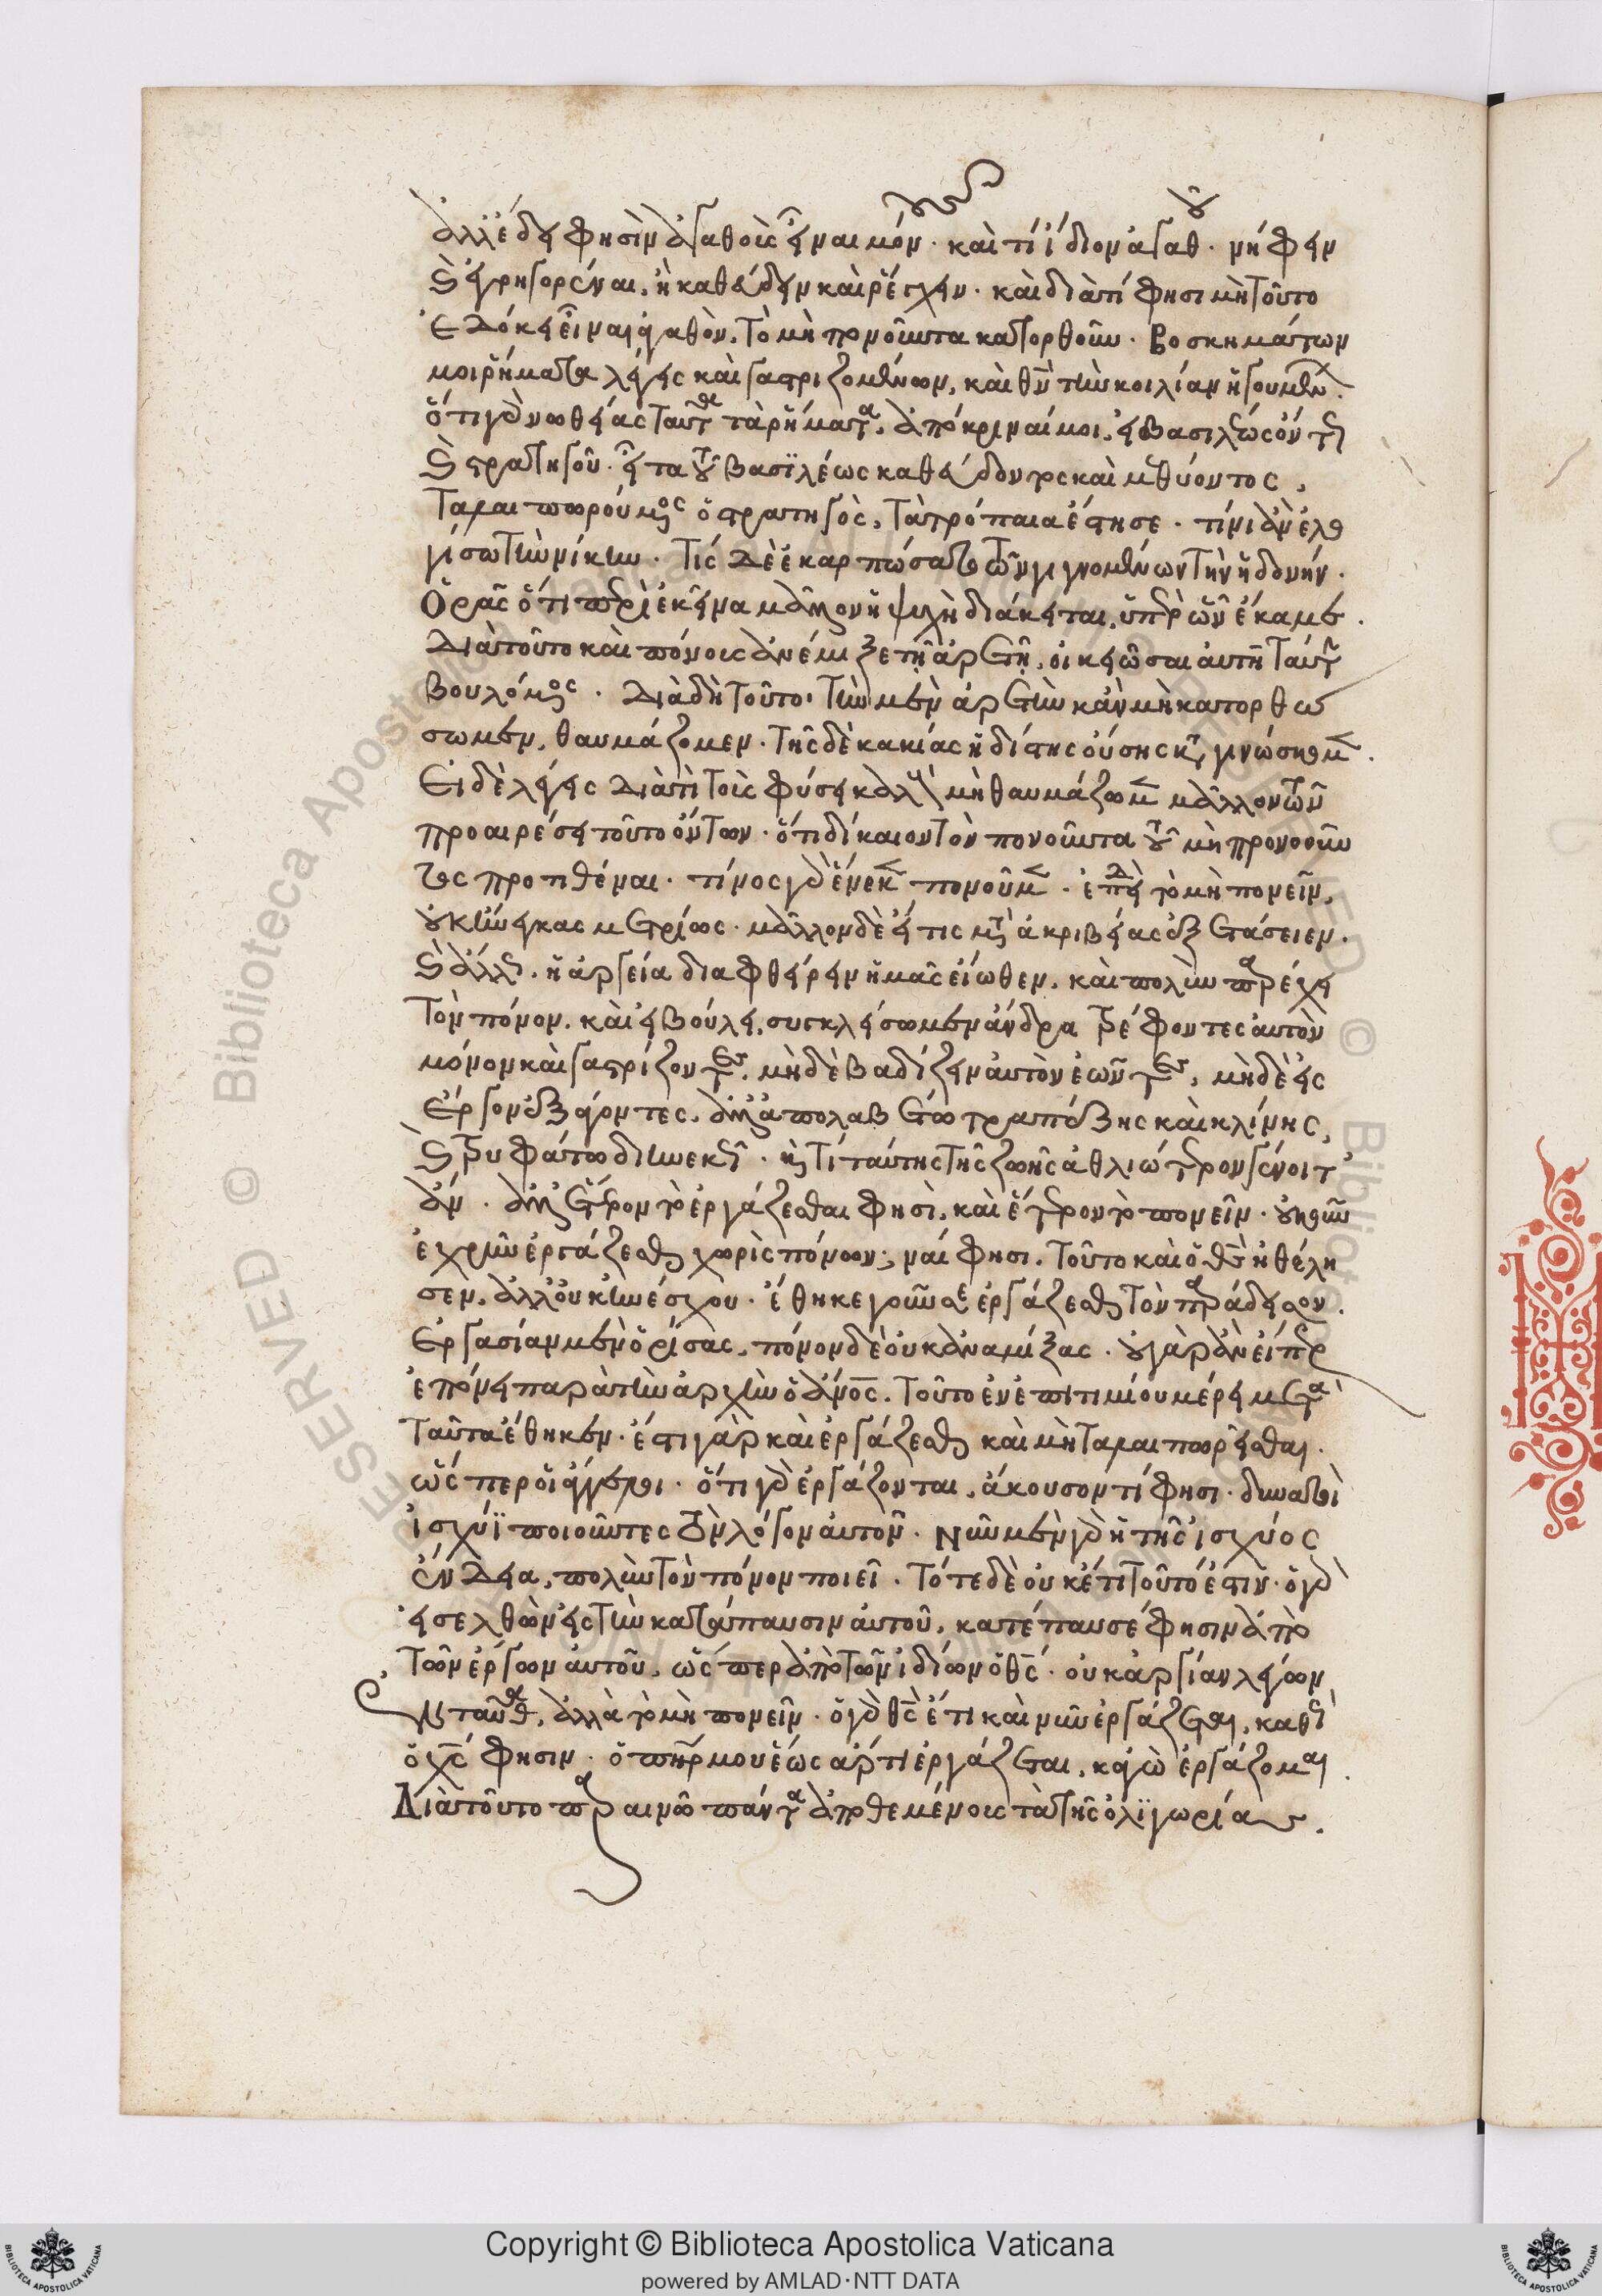 ἀλλ' ἔδει φησὶν ἀγαθοὺς εἶναι μόνον. καὶ τί ἴδιον ἀγαθοῦ. μή φην
ἐγρηγορέναι, ἢ καθεύδειν καὶ ῥέγχειν. καὶ διατί φησι μὴ τοῦτο
ἐδόκει εἶναι ἀγαθὸν, τὸ μὴ πονοῦντα κατορθοῦν. βοσκημάτων
μοι ῥήματα λέγεις καὶ γαστριζομένων, καὶ θεὸν τὴν κοιλίαν ἡγουμένων.
ὅτι γὰρ νωθείας ταῦτα τὰ ῥήματα, ἀπόκριναί μοι. εἰ βασιλέως ὄντος
καὶ στρατηγοῦ. εἶτα τοῦ βασιλέως καθεύδοντος καὶ μεθύοντος,
ταλαιπωρούμενος ὁ στρατηγὸς, τὰ τρόπαια ἔστησε. τίνι ἂν ἐλο
γίσω τὴν νίκην. τίς δὲ ἐκαρπώσατο τῶν γιγνομένων τὴν ἡδονήν.
Ὁρᾷς ὅτι περὶ ἐκεῖνα μᾶλλον ἡ ψυχὴ διάκειται, ὑπὲρ ὧν ἔκαμε.
Διὰ τοῦτο καὶ πόνοις ἀνέμιξε τῇ ἀρετῇ, οἰκειῶσαι αὐτῇ ταύτην
βουλόμενος. Διὰ δὴ τοῦτο, τὴν μὲν ἀρετὴν κἂν μὴ κατορθώ
σωμεν, θαυμάζομεν. τῆς δὲ κακίας ἡδίστης οὔσης καταγινώσκομεν.
Εἰ δὲ λέγεις διατί τοὺς φύσει καλοὺς μὴ θαυμάζομεν μᾶλλον τῶν
προαιρέσει τοῦτο ὄντων. ὅτι δίκαιον τὸν πονοῦντα τοῦ μὴ πονοῦν
τος προτιθέναι. τίνος γὰρ ἕνεκεν πονοῦμεν. ἐπειδὴ τὸ μὴ πονεῖν,
οὐκ ἤνεγκας μετρίως. μᾶλλον δὲ εἴ τις μετὰ ἀκριβείας ἐξετάσειεν.
καὶ ἄλλως. ἡ ἀργεία διαφθείρειν ἡμᾶς εἴωθεν, καὶ πολὺν παρέχει
τὸν πόνον. καὶ εἰ βούλει, συγκλείσωμεν ἄνδρα τρέφοντες αὐτὸν
μόνον καὶ γαστρίζοντες, μηδὲ βαδίζειν αὐτὸν ἐῶντες, μηδὲ εἰς
ἔργον ἐξάγοντες. ἀλλ' ἀπολαυέτω τραπέζης καὶ κλίνης,
καὶ τρυφάτω διηνεκῶς. καὶ τί ταύτης τῆς ζωῆς ἀθλιώτερον γένοιτ'
ἄν. ἀλλ' ἕτερον τὸ ἐργάζεσθαι φησὶ, καὶ ἕτερον τὸ πονεῖν. οὐκοῦν
ἐχρῆν ἐργάζεσθαι χωρὶς πόνων; ναί φησι. τοῦτο καὶ ὁ θεὸς ἠθέλη
σεν. ἀλλ' οὐκ ἠνέσχου. ἔθηκε γοῦν σε ἐργάζεσθαι τὸν παράδεισον.
ἐργασίαν μὲν ὁρίσας, πόνον δὲ οὐκ ἀναμίξας. οὐ γὰρ ἂν εἴπερ
ἐπόνει παρὰ τὴν ἀρχὴν ὁ ἄνθρωπος, τοῦτο ἐν ἐπιτιμίου μέρει μετὰ
ταῦτα ἔθηκεν. ἔστι γὰρ καὶ ἐργάζεσθαι καὶ μὴ ταλαιπωρεῖσθαι.
ὥσπερ οἱ ἄγγελοι. ὅτι γὰρ ἐργάζονται, ἄκουσον τί φησι. δυνατοὶ
ἰσχύϊ ποιοῦντες τὸν λόγον αὐτοῦ. Νῦν μὲν γὰρ ἡ τῆς ἰσχύος
ἔνδεια, πολὺν τὸν πόνον ποιεῖ. τότε δὲ οὐκέτι τοῦτό ἐστιν. ὁ γὰρ
εἰσελθὼν εἰς τὴν κατάπαυσιν αὐτοῦ, κατέπαυσέ φησιν ἀπὸ
τῶν ἔργων αὐτοῦ, ὥσπερ ἀπὸ τῶν ἰδίων ὁ θεός. οὐκ ἀργίαν λέγων
ἐνταῦθα, ἀλλὰ τὸ μὴ πονεῖν. ὁ γὰρ θεὸς ἔτι καὶ νῦν ἐργάζεται, καθὼς
ὁ χριστός φησιν. ὁ πατήρ μου ἕως ἄρτι ἐργάζεται, κἀγὼ ἐργάζομαι.
Διὰ τοῦτο παραινῶ πάντα ἀποθεμένους τὰ τῆς ὀλιγωρίας.
Copyright © Biblioteca Apostolica Vaticana
powered by AMLAD·NTT DATA